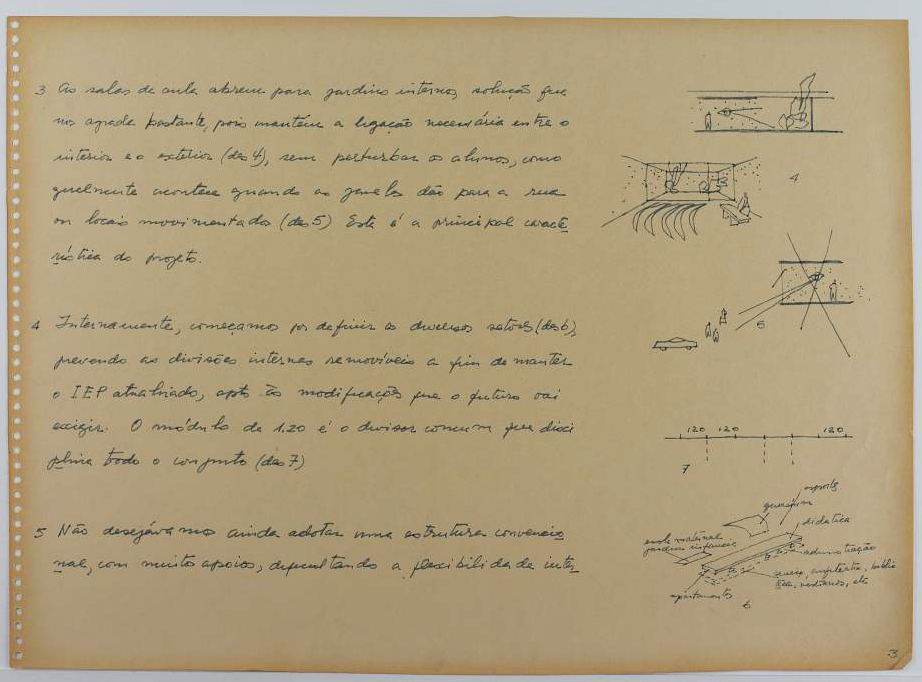 3 As salas de aula abrem para jardins internos, solução que
nos agrada bastante, pois mantém a ligação necessária entre o
interior e o exterior (des 4), sem perturbar os alunos, como
geralmente acontece quando as janelas dão para a rua
ou locais movimentados (des 5) Esta é a principal caracte
rística do projeto.
4 Internamente, começamos por definir os diversos setores (des 6),
prevendo as divisões internas removíveis a fim de manter
o IEP atualizado, apto às modificações que o futuro vai
exigir. O módulo de 1.20 é o divisor comum que disci
plina todo o conjunto (des 7)
5 Não desejávamos ainda adotar uma estrutura convencio
nal, com muitos apoios, dificultando a flexibilidade inter
4
5
120 120 120
7
esporte
ginásium
didatica
escola maternal
jardins infancia
administração
museu, biblio
teca, vestiarios, etc
apartamentos
6
3